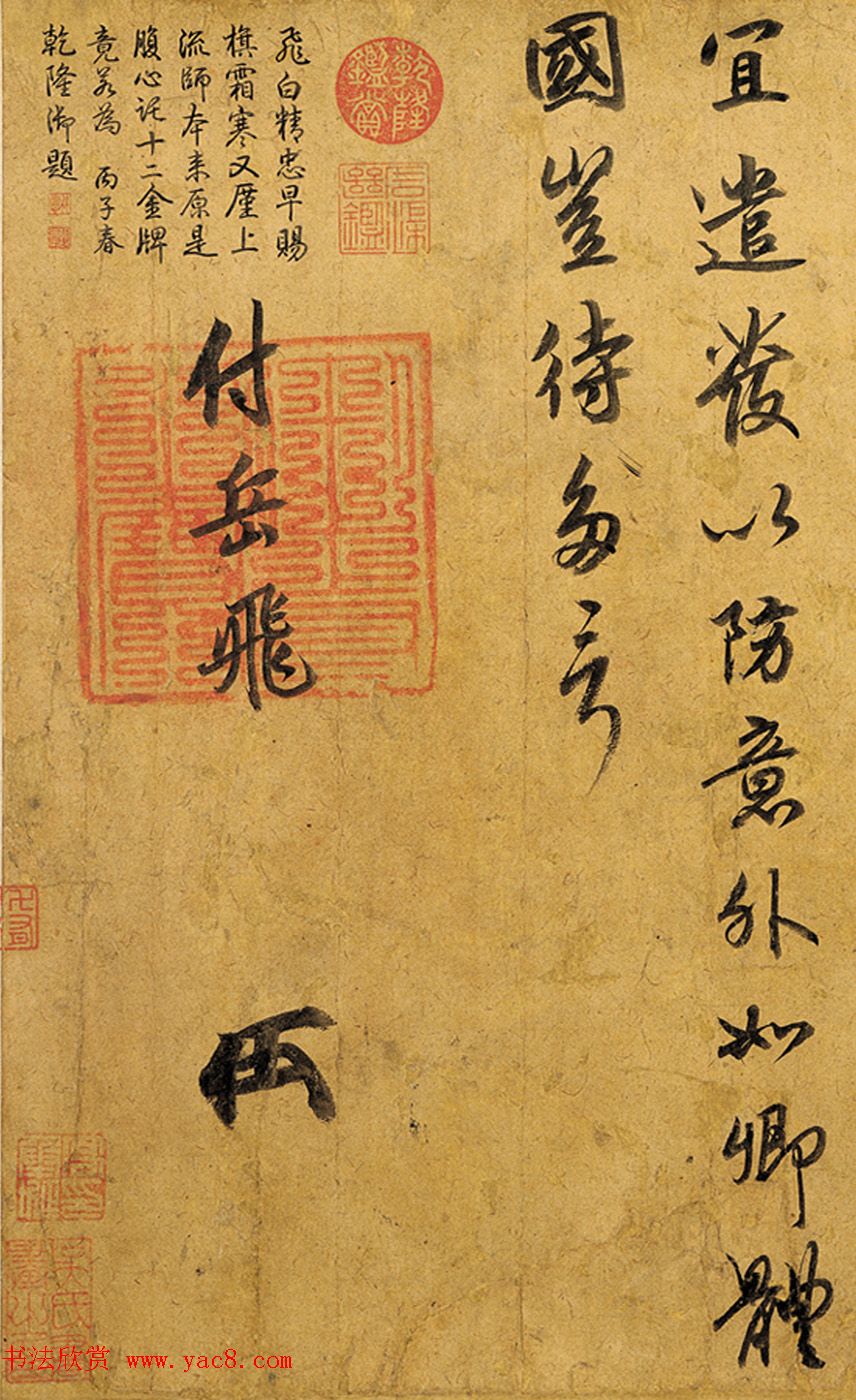 宜遣發以防意外如卿體
國豈待多言
付岳飛
乾隆鑑賞
飛白精忠早賜
旗霜寒又廑上
流師本来原是
腹心託十二金牌
竟若為 丙子春
乾隆御題
书法欣赏 www.yac8.com